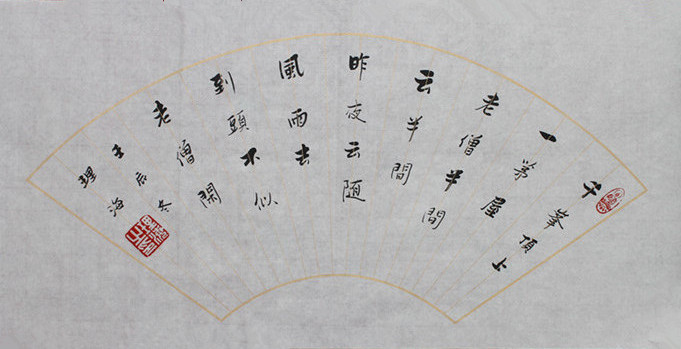 千峯頂上
一茅屋
老僧半間
云半間
昨夜云随
風雨去
到頭不似
老僧閑
壬辰冬
理海